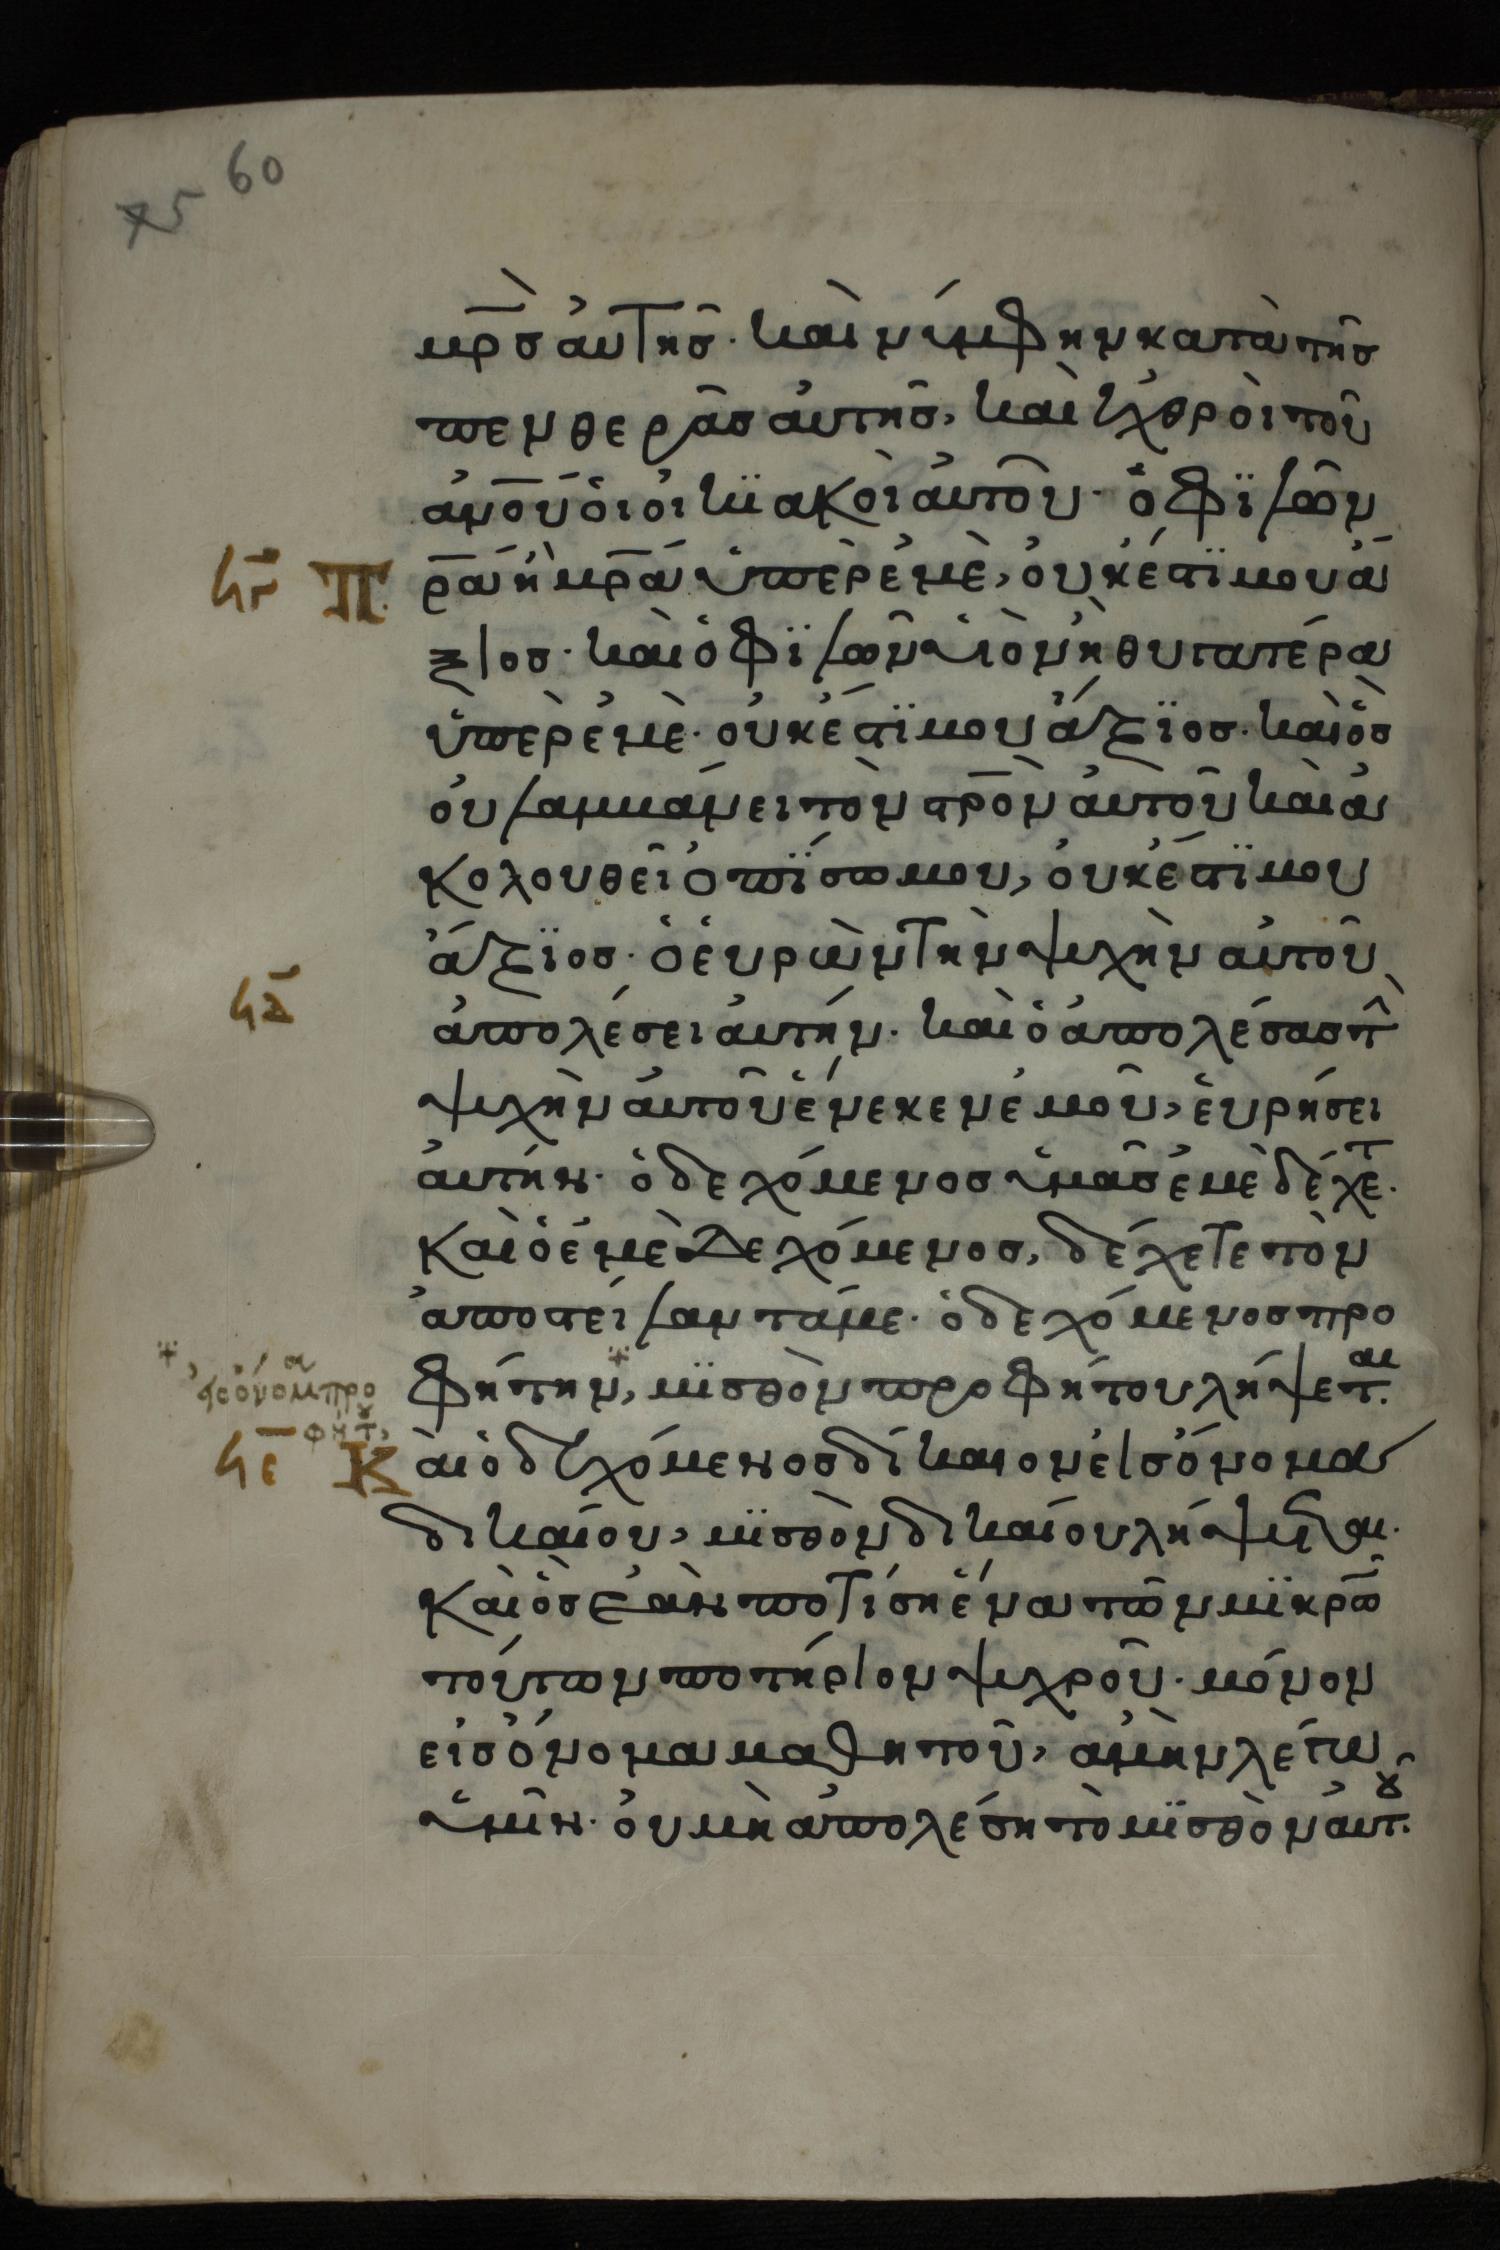 60
75
μρ̅σ αὐτῆσ· καὶ νύμφην κατὰ τῆσ
πενθερᾶσ αὐτῆσ, καὶ ἐχθροὶ τοῦ
ἀν̅ο̅υ̅ ὁι ὀικϊακοὶ ἀυτοῦ· ὁ φϊλῶν
Π ρ̅α̅ ἢ μρ̅α̅ ὑπὲρ ἐμὲ, οὐκ ἔστϊ μου ἄ
ξιοσ· καὶ ὁ φϊλῶν ὑιὸν ἢ θυγατέρα
ὑπὲρ ἐμὲ· οὐκ ἔστϊ μου ἄξϊοσ· καὶ ὃσ
οὐ λαμμάνει τὸν στρ̅ον ἀυτοῦ καὶ ἀ
κολουθεῖ ὀπϊσω μου, οὐκ ἔστϊ μου
ἄξϊοσ· ὁ ἑυρὼν τὴν ψυχὴν αὐτοῦ
ἀπολέσει ἀυτήν· καὶ ὁ ἀπολέσασ τ̑
ψυχὴν ἀυτοῦ ἕνεκεν ἐμοῦ, ἑυρήσει
ἀυτήν· ὁ δεχόμενοσ ὑμᾶσ ἐμὲ δέχετ·
καὶ ὁ ἐμὲ δεχόμενοσ, δέχετε τὸν
ἀποστείλαντά με· ὁ δεχόμενοσ προ
φήτην, μϊσθὸν προφήτου λήψεται·
εἰσ ὄνομα προ
φήτου,
Κ αὶ ὁ δεχόμενοσ δίκαιον εἰσ ὄνομα
δικαίου, μϊσθὸν δικαίου λήψεται·
καὶ ὃσ ἐὰν ποτίσῃ ἕνα τῶν μϊκρῶ
τούτων ποτήριον ψυχροῦ· μόνον
εἰσ ὄνομα μαθητοῦ, ἀμὴν λέγω
ὑμῖν· οὐ μὴ ἀπολέσῃ τὸ μϊσθὸν ἀυτου·